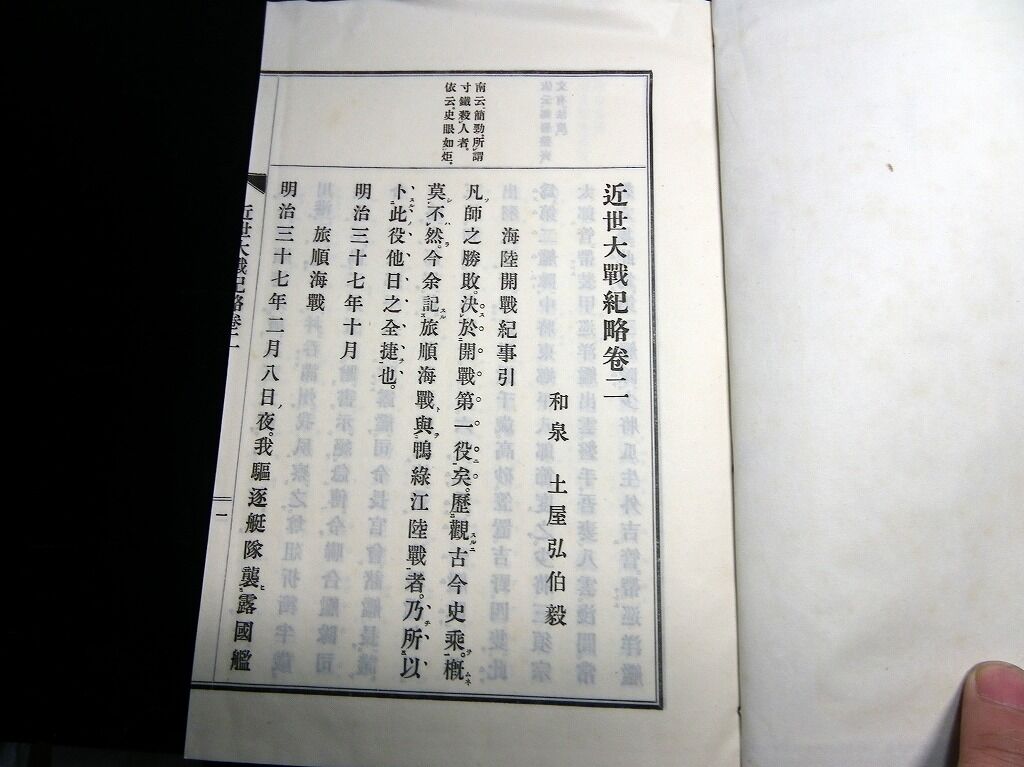 南云、簡勁、所謂
寸鐵殺人者。
依云、史眼如炬、
近世大戰紀略卷二
和泉 土屋弘伯毅
海陸開戰紀事引
凡師之勝敗。決於開戰第一役矣。歷觀古今史乘。槪
莫不然。今余記旅順海戰與鴨綠江陸戰者。乃所以
卜此役他日之全捷也。
明治三十七年十月
旅順海戰
明治三十七年二月八日夜。我驅逐艇隊襲露國艦
近世大戰紀略卷二
一